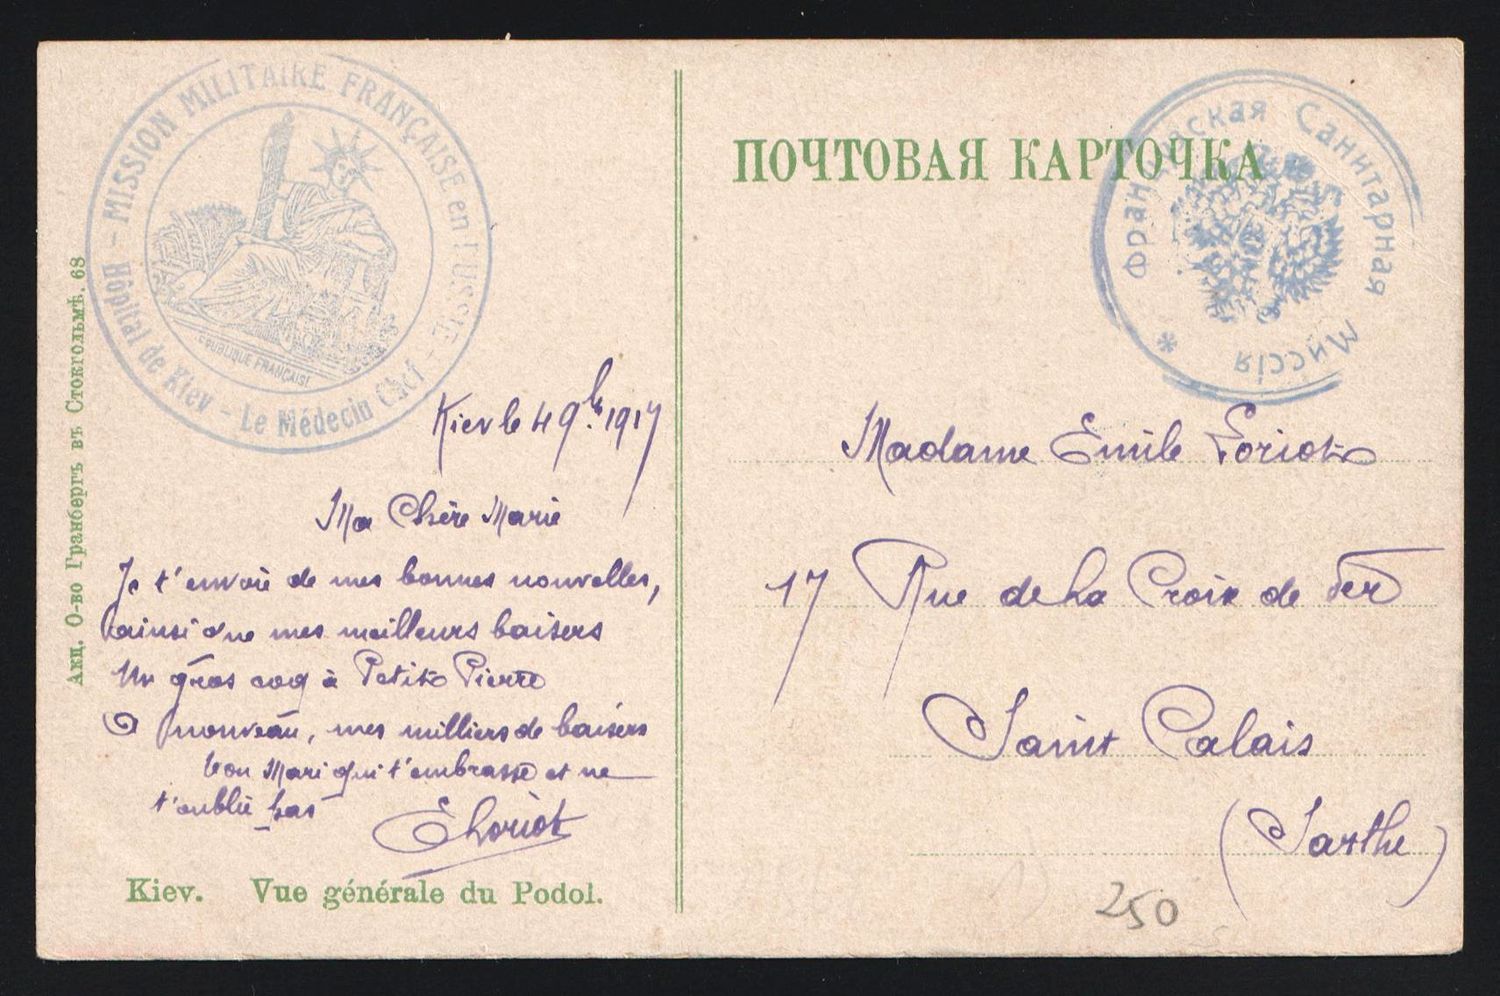 MISSION MILITAIRE FRANÇAISE en RUSSIE -
Hôpital de Kiev - Le Médecin Chef
RÉPUBLIQUE FRANÇAISE
Акц. О-во Гранбергъ въ Стокгольмѣ. 68
Kiev le 4 9bre 1917
Ma Chère Marie
Je t'envoie de mes bonnes nouvelles,
ainsi que mes meilleurs baisers
Un gros coq à Petit Pierre
à nouveau, mes milliers de baisers
ton Mari qui t'embrasse et ne
t'oublie pas
ELoriot
Kiev. Vue générale du Podol.
ПОЧТОВАЯ КАРТОЧКА
Французская Санитарная Миссія *
Madame Emile Loriot
17 Rue de la Croix de Fer
Saint Calais
(Sarthe)
250